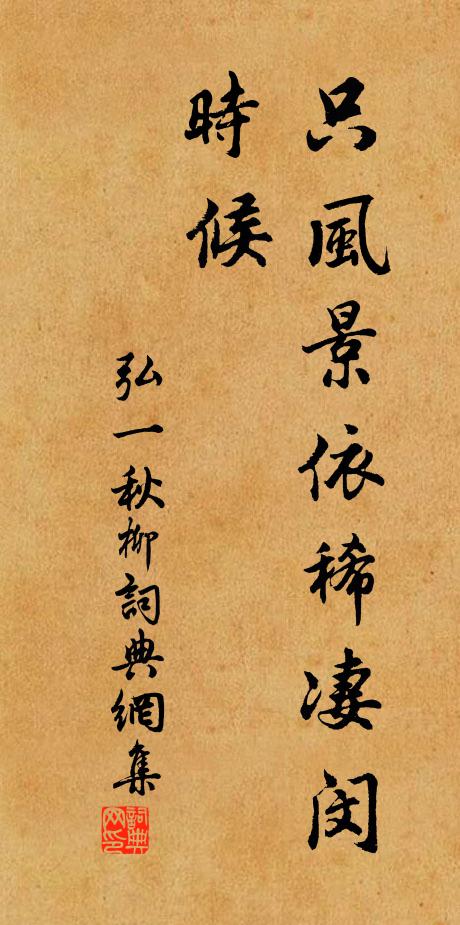 只風景依稀淒閔
時候
弘一秋柳詞典網集
詞典
网印